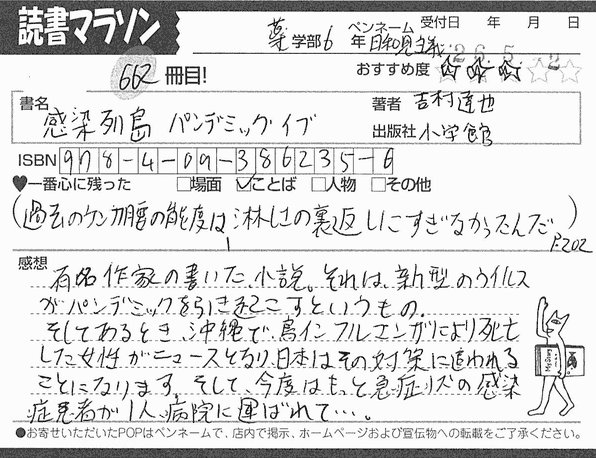 読書マラソン
受付日 年 月 日
ペンネーム
薬学部6年 日和見主義
26.5.2
おすすめ度 ☆☆☆☆☆
662冊目!
書名
感染列島 パンデミックイブ
著者 吉村達也
出版社 小学館
ISBN 978-4-09-386235-6
♥一番心に残った □場面 ☑ことば □人物 □その他
(過去のケンカ腰の態度は、淋しさの裏返しにすぎなかったんだ)
P.202
感想
有名作家の書いた小説。それは、新型のウイルス
がパンデミックを引き起こすというもの。
そしてあるとき、沖縄で、鳥インフルエンザにより死亡
した女性がニュースとなり、日本はその対策に追われる
ことになります。そして、今度はもっと急症リズの感染
症患者が1人、病院に運ばれて…。
●お寄せいただいたPOPはペンネームで、店内で掲示、ホームページおよび宣伝物への転載をご了承ください。